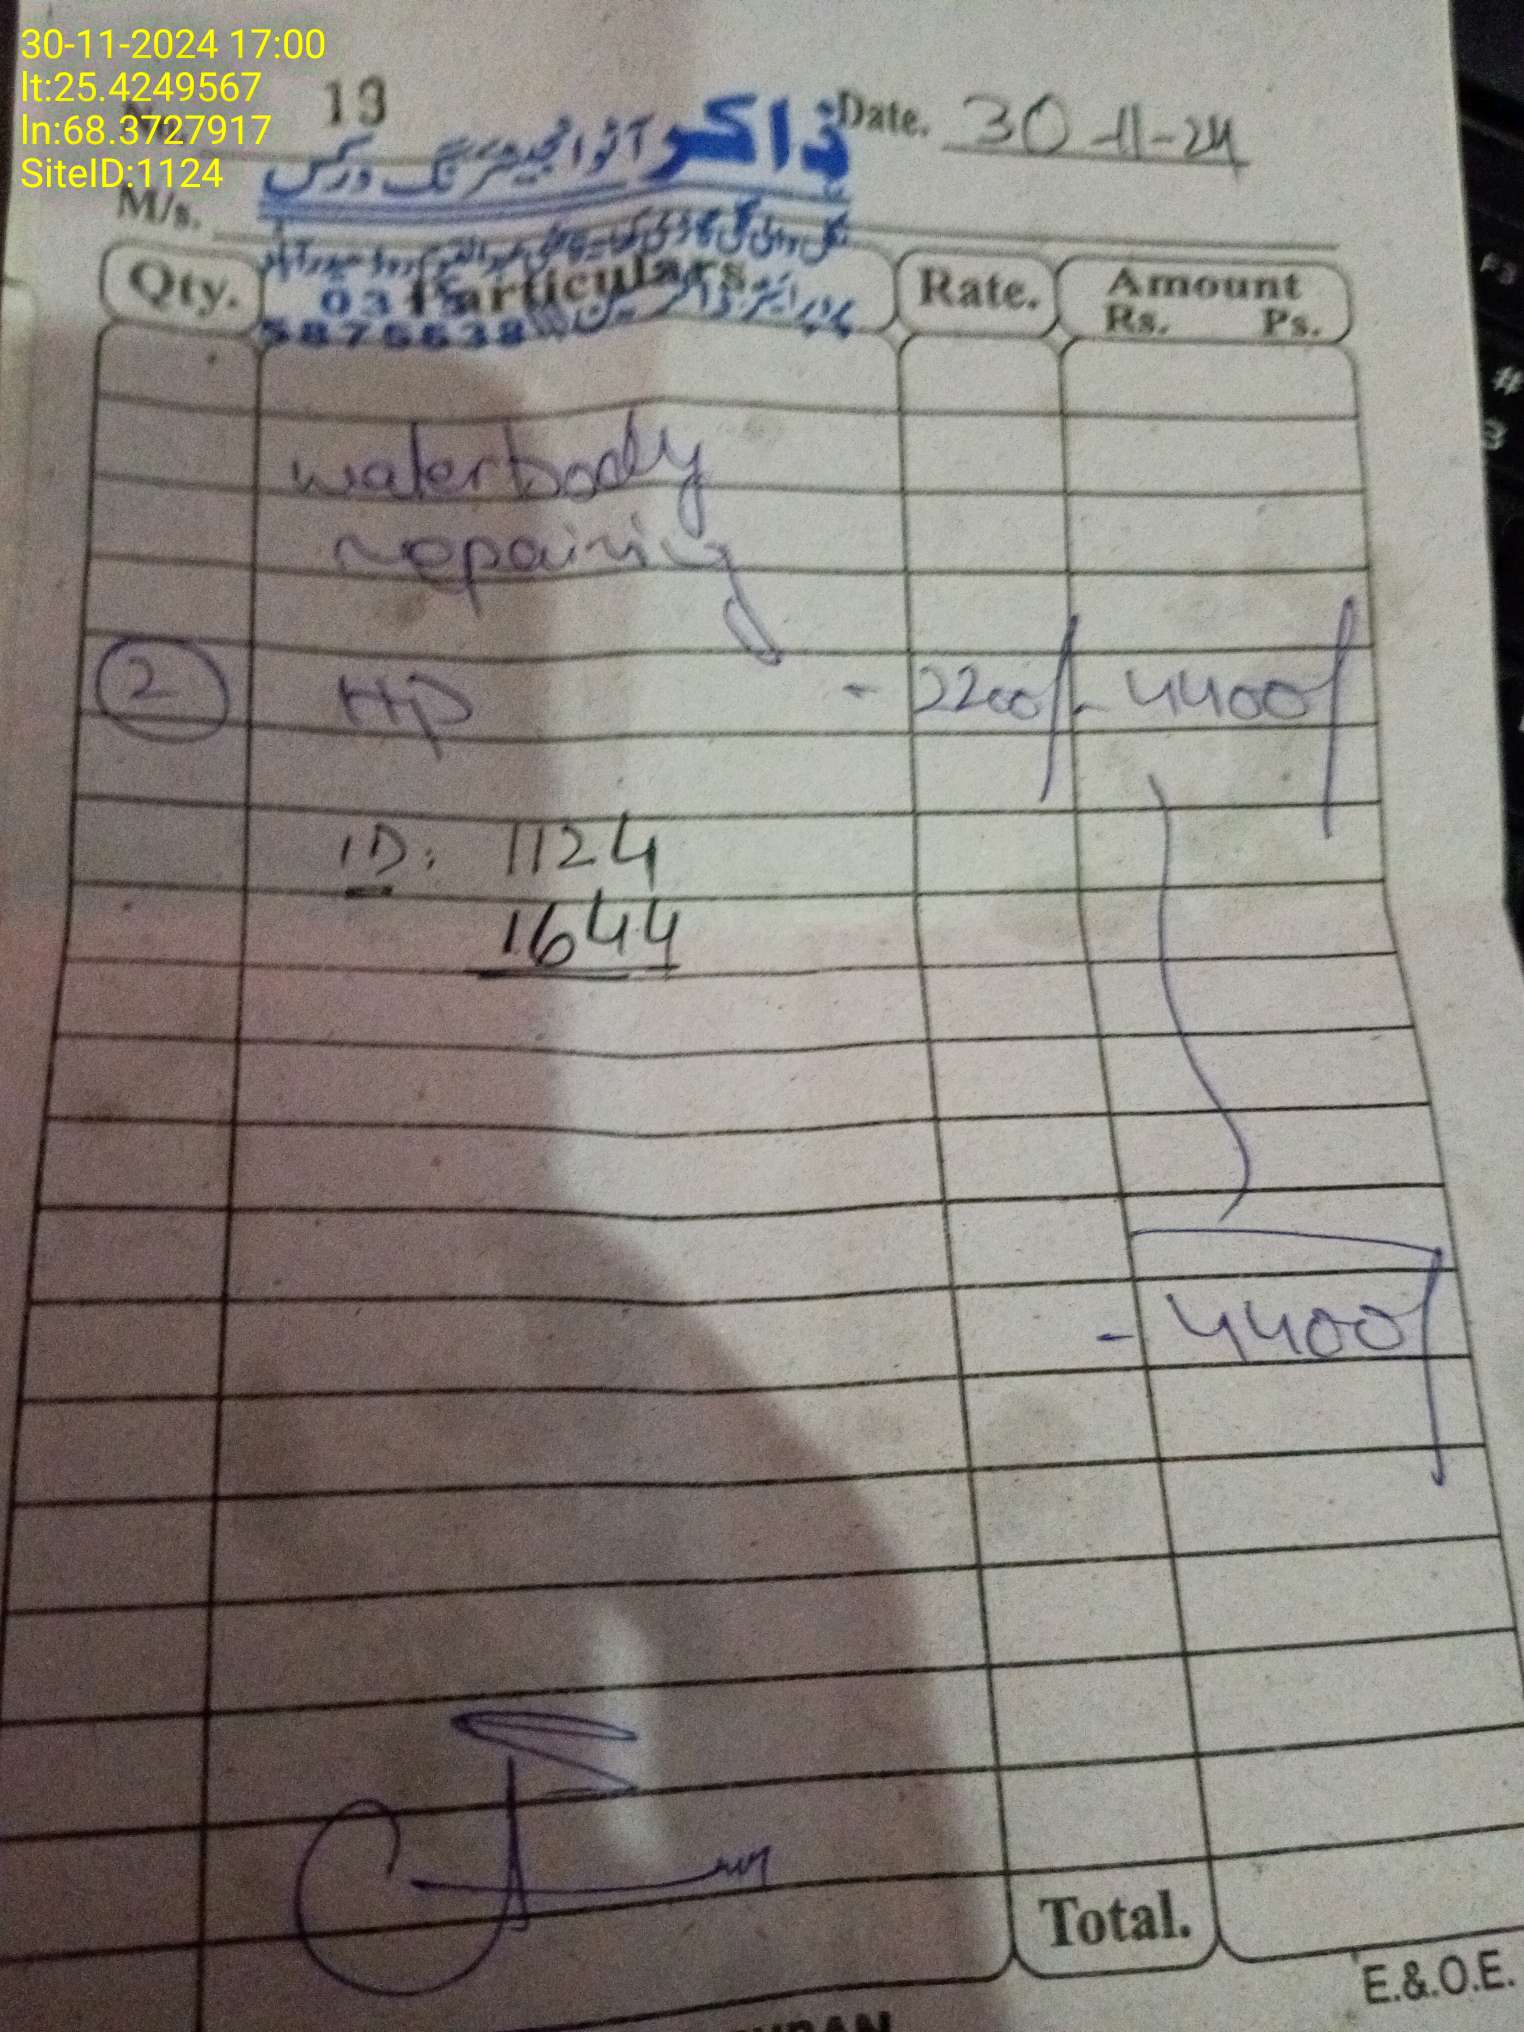 30-11-2024 17:00
lt:25.4249567
ln:68.3727917
SiteID:1124
13
Date. 30-11-24
ذاکر آٹو انجینئرنگ ورکس
M/s.
Qty. Particulars. Rate. Amount
Rs. Ps.
03
5875638
waterbody
repairing
2 HP - 2200/- 4400/
ID: 1124
1644
- 4400/
Total.
E.&.O.E.